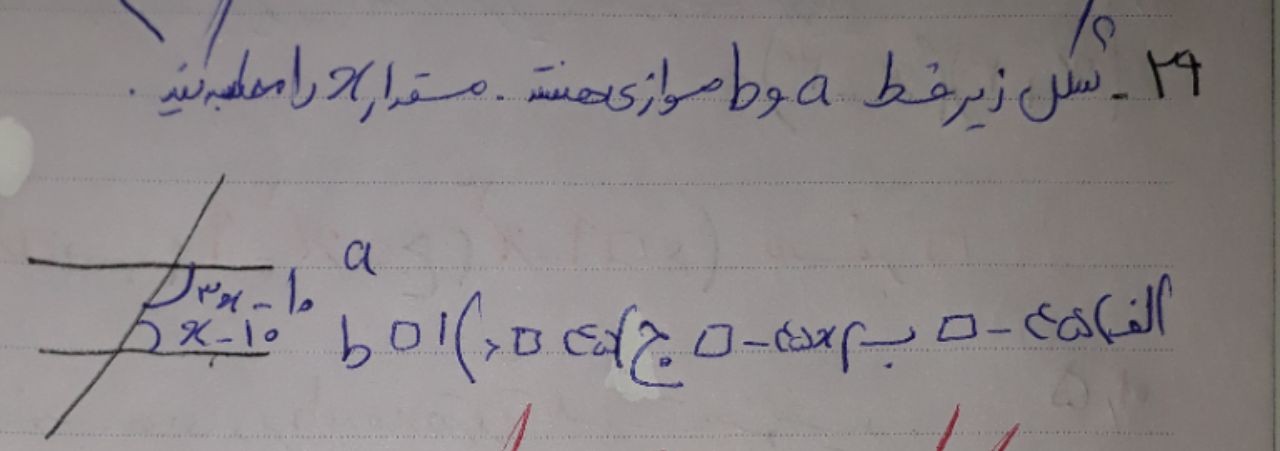 ۲۹ - شکل زیر خط a و b موازی هستند . مقدار x را محاسبه کنید .
a
۳x - ۱۰
x - ۱۰
b
الف) ۴۵ - □ ب) □ ج) ۴۵ □ د) ۱۵